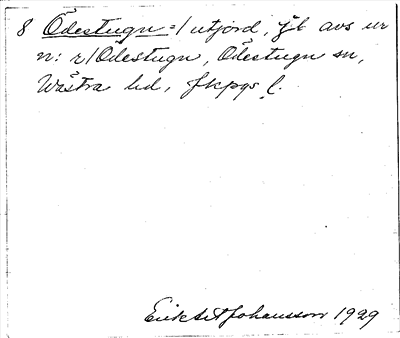 8 Ödestugn=/utjord, jb avs ur
n: r/Ödestugn, Ödestugn sn,
Västra hd, Jkpgs l.
Erik Johansson 1929